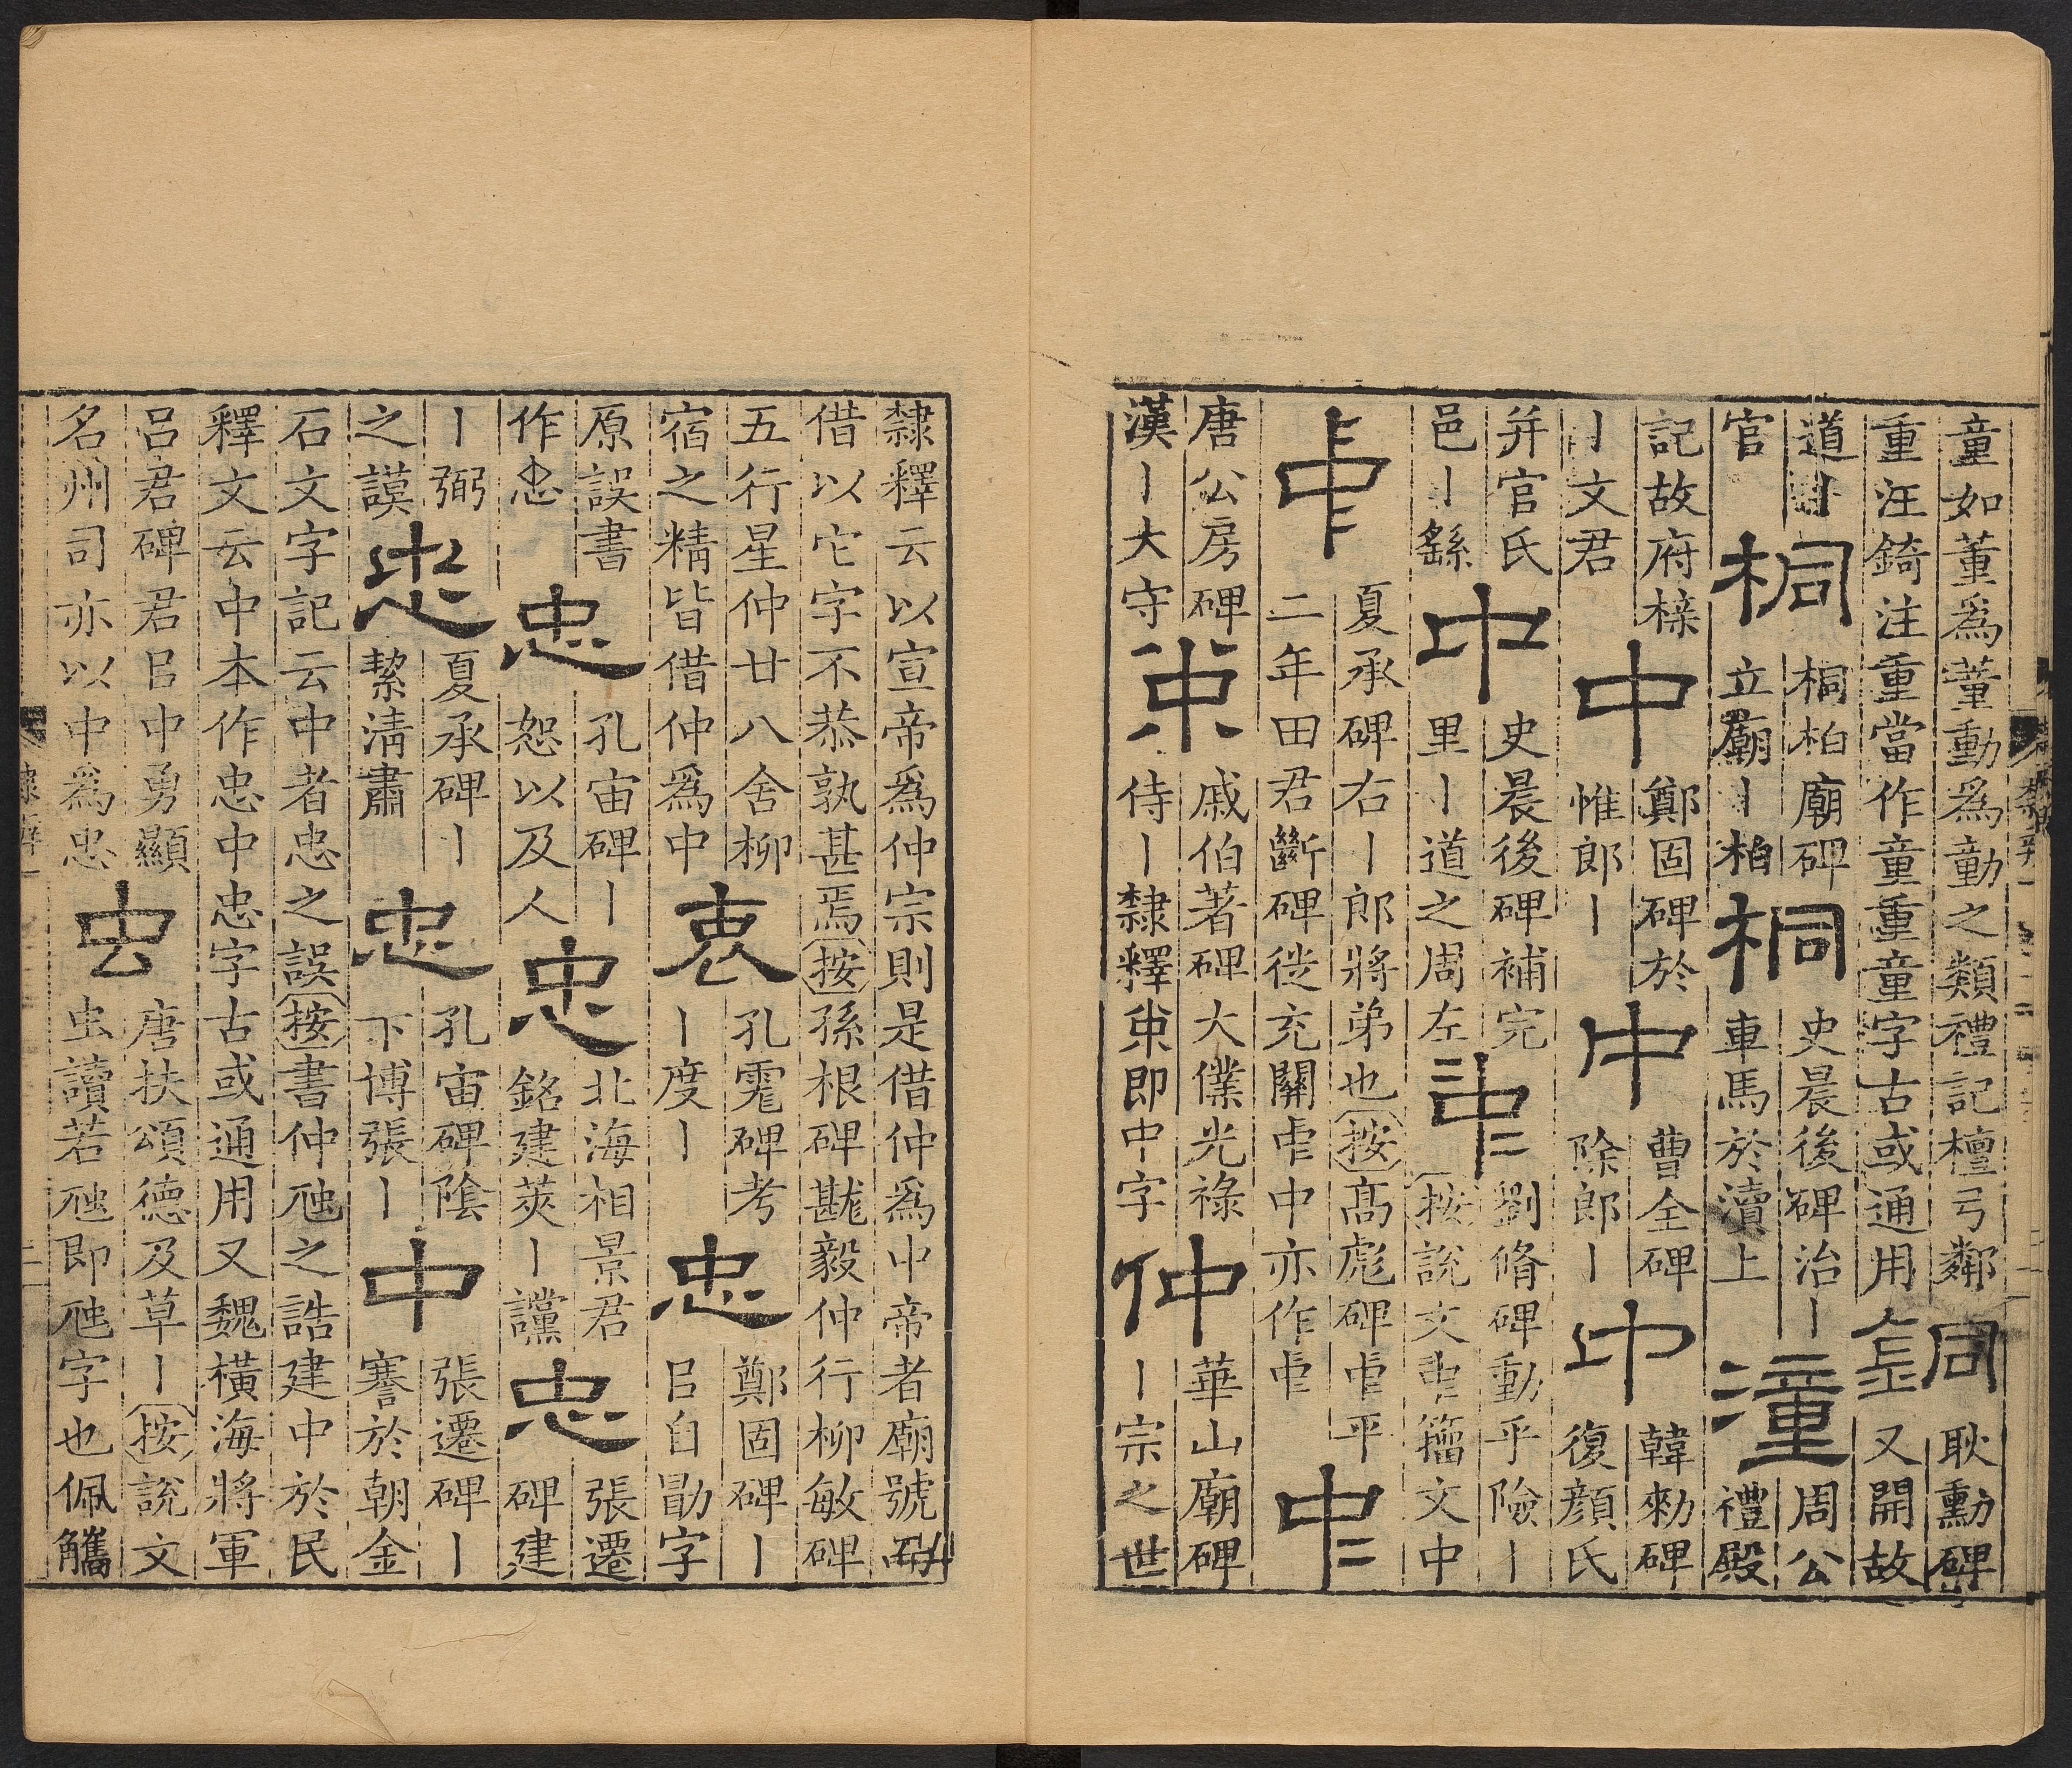 童如董爲蕫動爲勭之類禮記檀弓鄰
重汪錡注重當作童重童字古或通用
同
耿勳碑
又開故
道丨
官
桐
桐柏廟碑
立廟丨柏
桐
史晨後碑治丨
車馬於瀆上
潼
周公
禮殿
記故府椽
丨文君
中
鄭固碑於
惟郎丨
中
曹全碑
除郎丨
中
韓勑碑
復顏氏
并官氏
邑丨繇
中
史晨後碑補完
里丨道之周左
劉脩碑動乎險丨
按說文籒文中
夏承碑右丨郎將弟也按高彪碑平
二年田君斷碑從充關中亦作
唐公房碑
漢丨大守
戚伯著碑大僕光祿
侍丨隸釋即中字
仲
華山廟碑
丨宗之世
隸釋云以宣帝爲仲宗則是借仲爲中帝者廟號
借以它字不恭孰甚焉按孫根碑戡毅仲行柳敏碑
五行星仲廿八舍柳
宿之精皆借仲爲中
衷
孔霓碑考
丨度丨
忠
鄭固碑丨
㠯自勖字
原誤書
作忠
忠
孔宙碑丨
恕以及人
忠
北海相景君
銘建莢丨讜
忠
張遷
碑建
丨弼
之謨
忠
夏承碑丨
絜淸肅
忠
孔宙碑陰
下博張丨
中
張遷碑丨
謇於朝金
石文字記云中者忠之誤按書仲虺之誥建中於民
釋文云中本作忠中忠字古或通用又魏橫海將軍
呂君碑君㠯中勇顯
名州司亦以中爲忠
虫
唐扶頌德及草丨按說文
虫讀若虺即虺字也佩觿